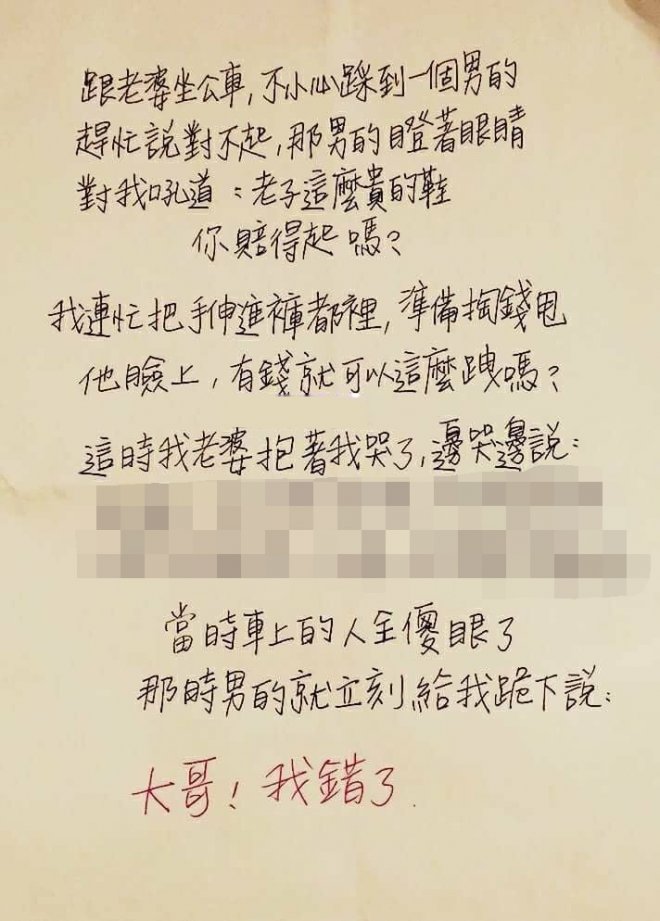 跟老婆坐公車,不小心踩到一個男的
趕忙說對不起,那男的瞪著眼睛
對我吼道:老子這麼貴的鞋
你賠得起嗎?
我連忙把手伸進褲都裡,準備掏錢甩
他臉上,有錢就可以這麼跩嗎?
這時我老婆抱著我哭了,邊哭邊說:
當時車上的人全傻眼了
那時男的就立刻給我跪下說:
大哥!我錯了.